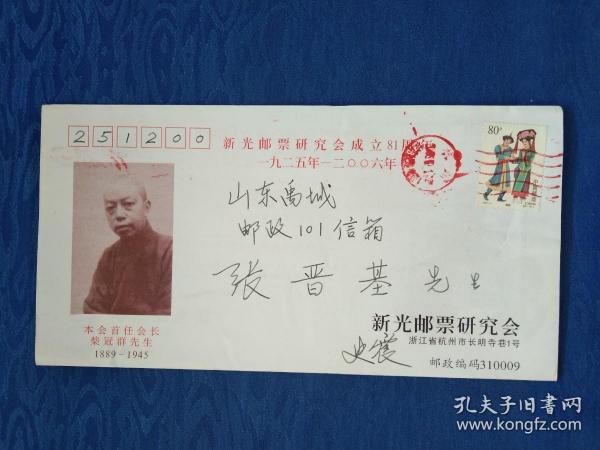 251200
新光邮票研究会成立81周
一九二五年－二〇〇六年
80分
山东禹城
邮政101信箱
张晋基先生
本会首任会长
柴冠群先生
1889－1945
新光邮票研究会
浙江省杭州市长明寺巷1号
史震
邮政编码310009
孔夫子旧书网
www.kongfz.com